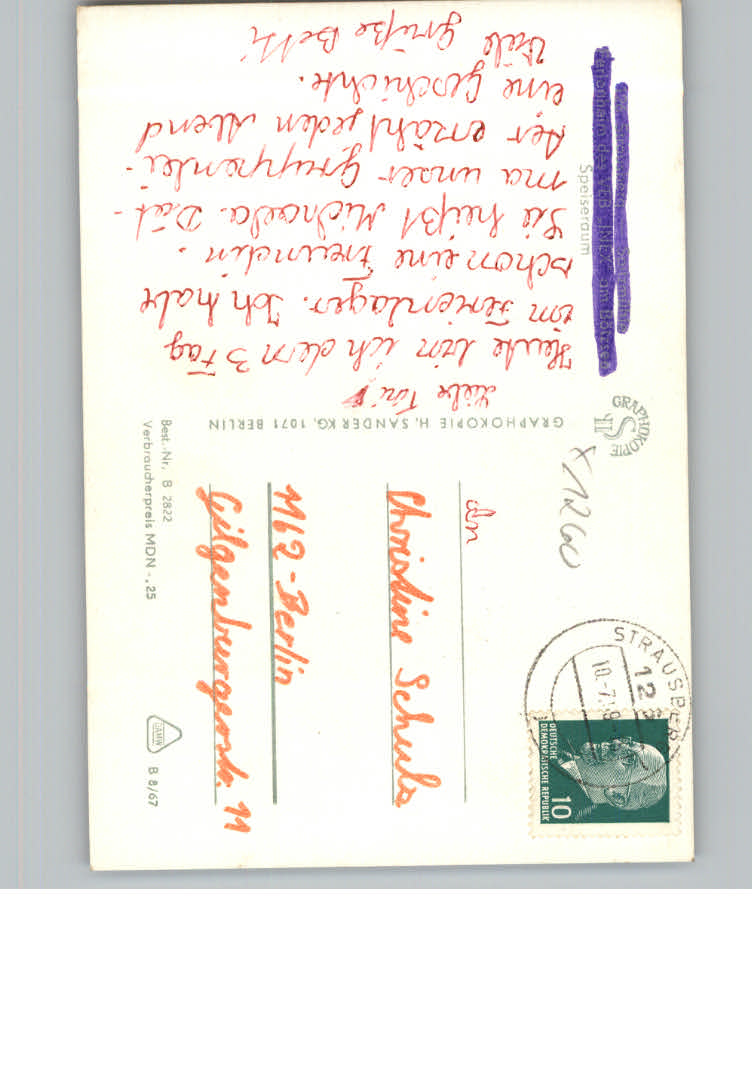 Speiseraum
Liebe Tori
Heute bin ich dem 3 Tag
im Ferienlager. Ich habe
schon eine Freundin.
Sie heißt Michaela. Dät-
ma unser Gruppenlei-
ter erzählt jeden Abend
eine Geschichte.
Viele Grüße Betti
GRAPHOKOPIE H. SANDER KG, 1071 BERLIN
GRAPHOKOPIE
HS
x1260
STRAUSBERG
10.-7.
DEUTSCHE
DEMOKRATISCHE REPUBLIK
10
An
Christine Schulz
1162-Berlin
Gilgenburgerstr. 11
Best.-Nr. B 2822
Verbraucherpreis MDN -,25
B 8/67